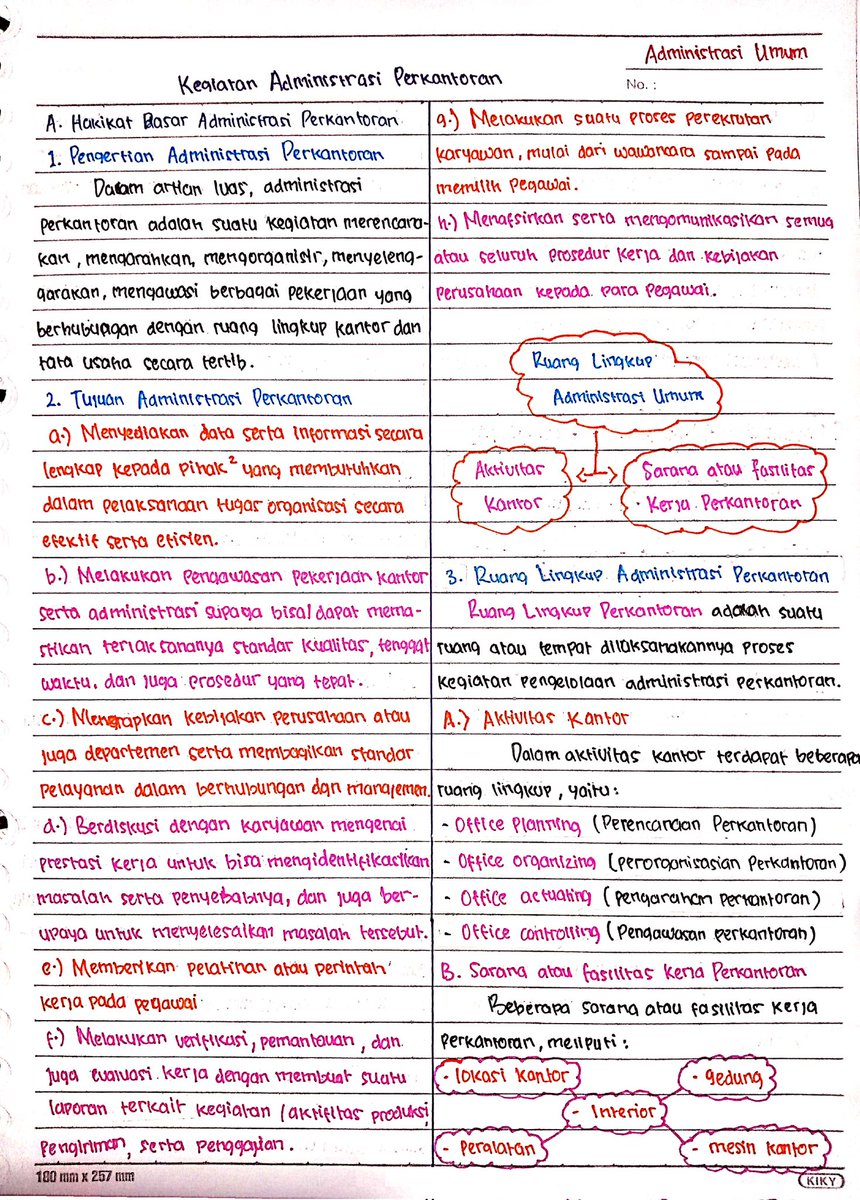 Administrasi Umum
No. :
Kegiatan Administrasi Perkantoran
A. Hakikat Dasar Administrasi Perkantoran
1. Pengertian Administrasi Perkantoran
Dalam artian luas, administrasi
perkantoran adalah suatu kegiatan merencana-
kan, mengarahkan, mengorganisir, menyeleng-
garakan, mengawasi berbagai pekerjaan yang
berhubungan dengan ruang lingkup kantor dan
tata usaha secara tertib.
2. Tujuan Administrasi Perkantoran
a.) Menyediakan data serta informasi secara
lengkap kepada pihak² yang membutuhkan
dalam pelaksanaan tugas organisasi secara
efektif serta efisien.
b.) Melakukan pengawasan pekerjaan kantor
serta administrasi supaya bisa/dapat mema-
stikan terlaksananya standar kualitas, tenggat
waktu, dan juga prosedur yang tepat.
c.) Menerapkan kebijakan perusahaan atau
juga departemen serta membagikan standar
pelayanan dalam berhubungan dgn manajemen.
d.) Berdiskusi dengan karyawan mengenai
prestasi kerja untuk bisa mengidentifikasikan
masalah serta penyebabnya, dan juga ber-
upaya untuk menyelesaikan masalah tersebut.
e.) Memberikan pelatihan atau perintah
kerja pada pegawai
f.) Melakukan verifikasi, pemantauan, dan
juga evaluasi kerja dengan membuat suatu
laporan terkait kegiatan /aktifitas produksi,
pengiriman, serta penggajian.
g.) Melakukan suatu proses perekrutan
karyawan, mulai dari wawancara sampai pada
memilih pegawai.
h.) Menafsirkan serta mengomunikasikan semua
atau seluruh prosedur kerja dan kebijakan
perusahaan kepada para pegawai.
Ruang Lingkup
Administrasi Umum
Aktivitas
Kantor
Sarana atau fasilitas
Kerja Perkantoran
3. Ruang Lingkup Administrasi Perkantoran
Ruang Lingkup Perkantoran adalah suatu
ruang atau tempat dilaksanakannya proses
kegiatan pengelolaan administrasi perkantoran.
A.) Aktivitas Kantor
Dalam aktivitas kantor terdapat beberapa
ruang lingkup, yaitu:
- Office Planning (Perencanaan Perkantoran)
- Office organizing (perorganisasian Perkantoran)
- Office actuating (pengarahan perkantoran)
- Office controlling (Pengawasan perkantoran)
B. Sarana atau fasilitas Kerja Perkantoran
Beberapa sarana atau fasilitas kerja
perkantoran, meliputi:
- lokasi kantor
- gedung
- Interior
- Peralatan
- mesin kantor
180 mm x 257 mm
KIKY